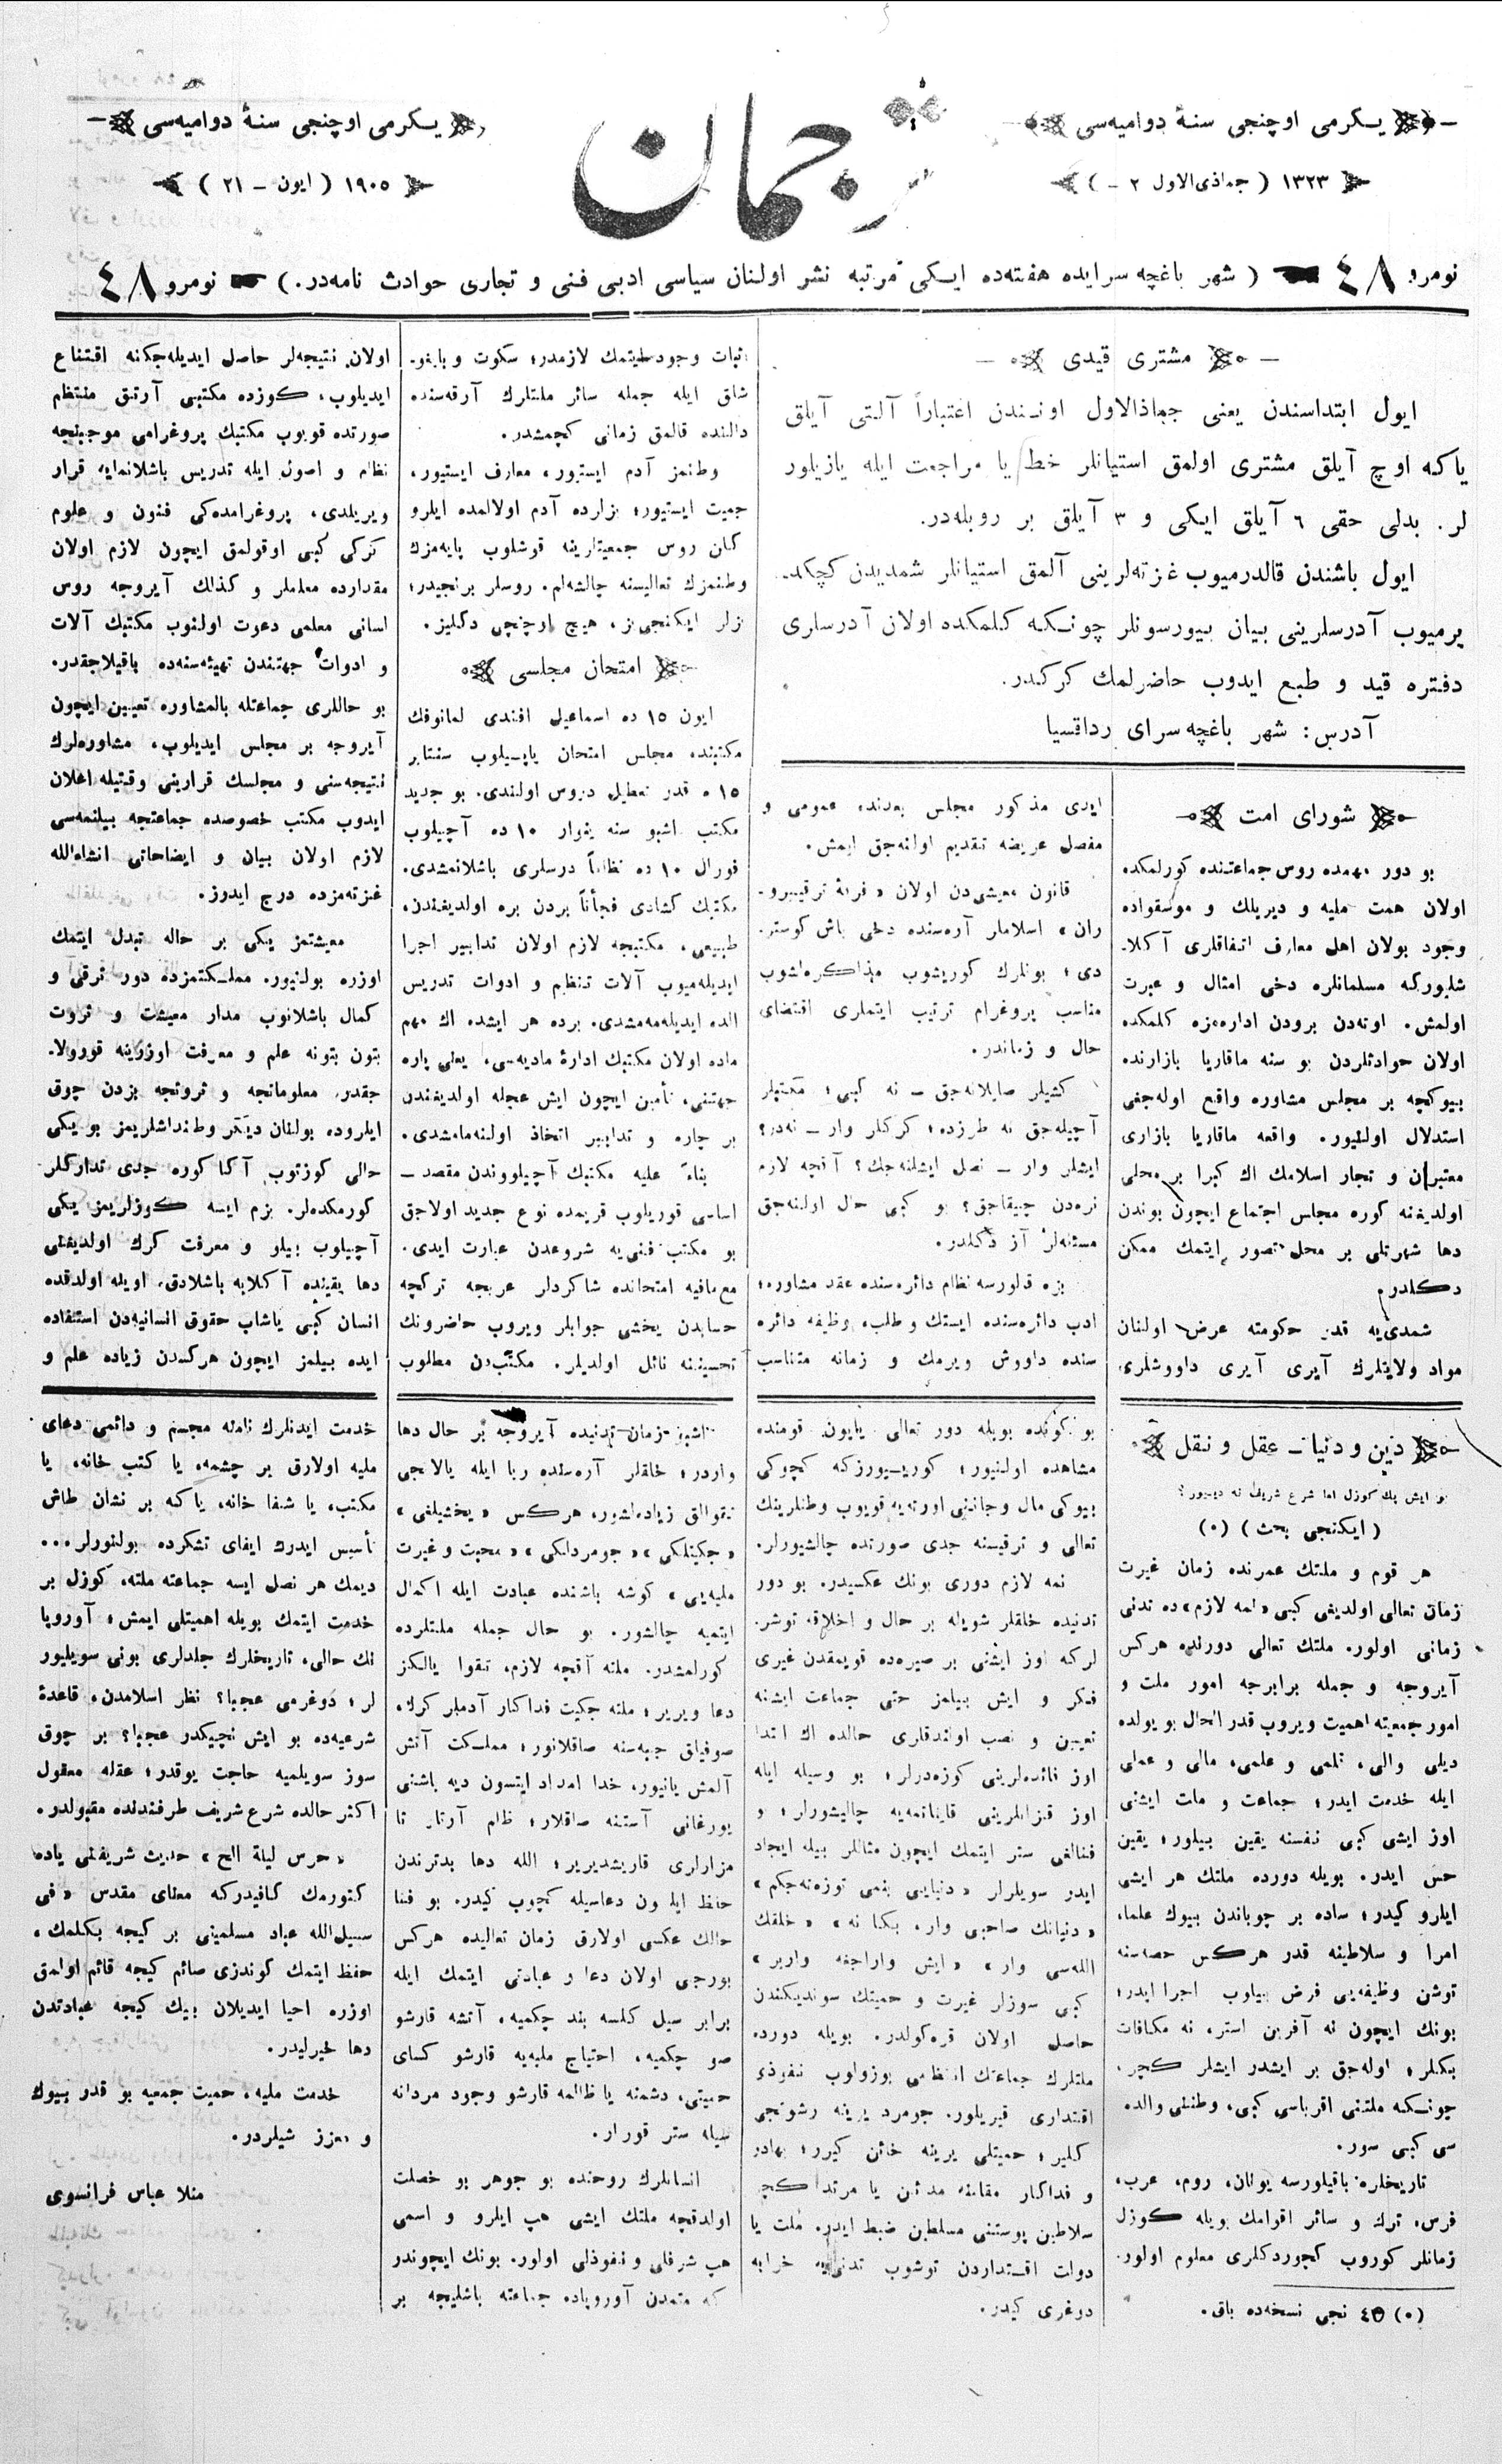 يكرمى اوچنجى سنهٔ دواميه‌سى
١٣٢٣ ( جماذى‌الاول ٢ - )
ترجمان
يكرمى اوچنجى سنهٔ دواميه‌سى
١٩٠٥ ( ايون - ٢١ )
نومرو ٤٨ ( شهر باغچه سرايده هفته‌ده ايكى مرتبه نشر اولنان سياسى ادبى فنى و تجارى حوادث نامه‌در. ) نومرو ٤٨
مشترى قيدى
ايول ابتداسندن يعنى جماذالاول اونندن اعتباراً آلتى آيلق
ياكه اوچ آيلق مشترى اولمق استيانلر خط يا مراجعت ايله يازيلور
لر. بدلى حقى ٦ آيلق ايكى و ٣ آيلق بر روبله‌در.
ايول باشندن قالدرميوب غزته‌لرينى آلمق استيانلر شمديدن كچكد-
يرميوب آدرسلرينى بيان بيورسونلر چونكه كلمكده اولان آدرسلرى
دفتره قيد و طبع ايدوب حاضرلمك كركدر.
آدرس: شهر باغچه سراى رداقسيا
شوراى امت
بو دور مهمده روس جماعتنده كورلمكده
اولان همت مليه و ديريلك و موسقواده
وجود بولان اهل معارف اتفاقلرى آكلا-
شليوركه مسلمانلره دخى امثال و عبرت
اولمش. اوته‌دن برودن اداره‌مزه كلمكده
اولان حوادثلردن بو سنه ماقاريا بازارنده
بيوكچه بر مجلس مشاوره واقع اوله‌جغى
استدلال اولنيور. واقعه ماقاريا بازارى
معتبران و تجار اسلامك اك كبرا بر محلى
اولديغنه كوره مجلس اجتماع ايچون بوندن
دها شهرتلى بر محل تصور ايتمك ممكن
دكلدر.
شمدى‌يه قدر حكومته عرض اولنان
مواد ولايتلرك آيرى آيرى داووشلرى
ايدى مذكور مجلس بعدنده عمومى و
مفصل عريضه تقديم اولنه‌جق ايمش.
قانون معيشى‌دن اولان « فرقهٔ ترقيپرو-
ران » اسلاملر آره‌سنده دخى باش كوستر-
دى؛ بونلرك كوريشوب مذاكره‌لشوب
مناسب پروغرام ترتيب ايتملرى اقتضاى
حال و زماندر.
كشيلر صايلانه‌جق - نه كبى؛ مكتپلر
آچيله‌جق نه طرزده؛ كركلر وار - نه‌در؟
ايشلر وار - نصل ايشلنه‌جك؟ آقچه لازم
نره‌دن چيقاجق؟ بو كبى حال اولنه‌جق
مسئله‌لر آز دكلدر.
بزه قلورسه نظام دائره‌سنده عقد مشاوره؛
ادب دائره‌سنده ايستك و طلب، وظيفه دائره
سنده داووش ويرمك و زمانه متناسب
اثبات وجود ايتمك لازمدر؛ سكوت و
شلق ايله جمله سائر ملتلرك آرقه‌سنده
دالنده قالمق زمانى كچمشدر.
وطنمز آدم ايستيور، معارف ايستيور،
جميت ايستيور؛ بزلرده آدم اولالمده ايلرو
كلن روس جمعيتلرينه قوشلوب پايه‌مزك
وطنمزك تعاليسنه چالشه‌لم. روسلر برنجيدر؛
بزلر ايكنجى‌يز، هيچ اوچنچى دكليز.
امتحان مجلسى
ايون ١٥ ده اسماعيل افندى لمانوفك
مكتبنده مجلس امتحان ياپيلوب سنتابر
١٥ ه قدر تعطيل دروس اولندى. بو جديد
مكتب اشبو سنه ينوار ١٠ ده آچيلوب
فورال ١٠ ده نظاماً درسلرى باشلانمشدى.
مكتبك كشادى فجأتاً بردن بره اولديغندن،
طبيعى، مكتبجه لازم اولان تدابير اجرا
ايديله‌ميوب آلات تنظيم و ادوات تدريس
الده ايديله‌مه‌مشدى. برده هر ايشده اك مهم
ماده اولان مكتبك ادارهٔ ماديه‌سى، يعنى پاره
جهتنى، تأمين ايچون ايش عجله اولديغندن
بر چاره و تدابير اتخاذ اولنه‌مامشدى.
بناءً عليه مكتبك آچيلووندن مقصد -
اساسى قوريلوب قريمده نوع جديد اولاجق
بو مكتب فنى‌يه شروعدن عبارت ايدى.
مع‌مافيه امتحانده شاكردلر عربجه تركچه
حسابدن يخشى جوابلر ويروب حاضرونك
تحسيننه نائل اولديلر. مكتب‌دن مطلوب
اولان نتيجه‌لر حاصل ايديله‌جكنه اقتناع
ايديلوب، كوزده مكتبى آرتق منتظم
صورتده قويوب مكتبك پروغرامى موجبنجه
نظام و اصول ايله تدريس باشلانمايه قرار
ويريلدى، پروغرامده‌كى فنون و علوم
كركى كبى اوقولمق ايچون لازم اولان
مقدارده معلملر و كذلك آيروجه روس
لسانى معلمى دعوت اولنوب مكتبك آلات
و ادوات جهتندن تهيئه‌سنه‌ده باقيلاجقدر.
بو حاللرى جماعتله بالمشاوره تعيين ايچون
آيروجه بر مجلس ايديلوب، مشاوره‌لرك
نتيجه‌سنى و مجلسك قرارينى وقتيله اعلان
ايدوب مكتب خصوصده جماعتجه بيلنمه‌سى
لازم اولان بيان و ايضاحاتى انشاءالله
غزته‌مزده درج ايدرز.
معيشتمز يكى بر حاله تبدل ايتمك
اوزره بولنيور. مملكتمزده دور ترقى و
كمال باشلانوب مدار معيشت و ثروت
بتون بتونه علم و معرفت اوزرينه قوروولا-
جقدر. معلوماتجه و ثروتجه بزدن چوق
ايلروده بولنان ديكر وطنداشلريمز بو يكى
حالى كوزتوب آكا كوره جدى تداركلر
كورمكده‌لر. بزم ايسه كوزلريمز يكى
آچيلوب بيلو و معرفت كرك اولديغنى
دها يقينده آكلايه باشلادق. اويله اولدقده
انسان كبى ياشاب حقوق انسانيه‌دن استفاده
ايده بيلمز ايچون هركسدن زياده علم و
دين و دنيا - عقل و نقل
بو ايش پك كوزل اما شرع شريف نه ديبور؟
( ايكنجى بحث ) (٠)
هر قوم و ملتك عمرنده زمان غيرت
زمان تعالى اولديغى كبى « نمه لازم » ده تدنى
زمانى اولور. ملتك تعالى دورنده هركس
آيروجه و جمله برابرجه امور ملت و
امور جمعيته اهميت ويروب قدر الحال بو يولده
ديلى والى، قلمى و علمى، مالى و عملى
ايله خدمت ايدر؛ جماعت و ملت ايشنى
اوز ايشى كبى نفسنه يقين بيلور؛ يقين
حس ايدر. بويله دورده ملتك هر ايشى
ايلرو كيدر؛ ساده بر چوباندن بيوك علما،
امرا و سلاطينه قدر هركس حصه‌سنه
توشن وظيفه‌يى فرض بيلوب اجرا ايدر؛
بونك ايچون نه آفرين استر، نه مكافات
بكلر؛ اوله‌جق بر ايشدر ايشلر كچر.
چونكه ملتنى اقرباسى كبى، وطننى والده
سى كبى سور.
تاريخلره باقيلورسه يونان، روم، عرب،
فرس، ترك و سائر اقوامك بويله كوزل
زمانلر كوروب كچوردكلرى معلوم اولور.
(٠) ٤٥ نجى نسخه‌ده باق.
بو كونده بويله دور تعالى ياپون قومنده
مشاهده اولنيور؛ كوريبورزكه كچوكى
بيوكى مال و جاننى اورته‌يه قويوب وطنلرينك
تعالى و ترقيسنه جدى صورتده چالشيورلر.
نمه لازم دورى بونك عكسيدر. بو دور
تدنيده خلقلر شويله بر حال و اخلاقه توشر-
لركه اوز ايشنى بر صيره‌ده قويمقدن غيرى
فكر و ايش بيلمز حتى جماعت ايشنه
تعيين و نصب اولندقلرى حالده اك ابتدا
اوز فائده‌لرينى كوزه‌درلر؛ بو وسيله ايله
اوز قزانلرينى قايناتمه‌يه چاليشورلر؛ و
فنالغى ستر ايتمك ايچون مثاللر بيله ايجاد
ايدر سويلرلر « دنيايى بنمى توزه‌ته‌جكم »
« دنيانك صاحبى وار، بكا نه » « خلقك
الله‌سى وار » « ايش واراجغه وارير »
كبى سوزلر غيرت و حميتك سونديكندن
حاصل اولان قره‌كولدر. بويله دورده
ملتلرك جماعتك انتظامى بوزولوب نفوذى
اقتدارى قيريلور. جومرد يرينه رشوتجى
كلير؛ حميتلى يرينه خائن كيرر؛ بهادر
و فداكار مقامنه مدائن يا مرتد كچر
سلاطين پوستنى مسلطين ضبط ايدر. ملت يا
دولت اقتداردن توشوب تدنى‌يه خرابه
دوغرى كيدر.
اشبو زمان تدنيده آيروجه بر حال دها
واردر؛ خلقلر آره‌سنده ريا ايله يالانجى
تقوالق زياده‌لشور، هركس « يخشيلغى »
« جكيتلكى » « جومردلكى » « محبت و غيرت
مليه‌يى » كوشه باشنده عبادت ايله اكمال
ايتميه چالشور. بو حال جمله ملتلرده
كورلمشدر. ملته آقچه لازم، تقوا يالكز
دعا ويرير؛ ملته جكيت فداكار آدملر كرك،
صوفيلق جبه‌سنه صاقلانور؛ مملكت آتش
آلمش يانيور، خدا امداد ايتسون ديه باشنى
يورغانى آستنه صاقلار؛ ظلم آرتار تا
مزارلرى قاريشديرير؛ الله دها بدترندن
حفظ ايله ون دعاسيله كچوب كيدر. بو فنا
حالك عكسى اولارق زمان تعاليده هركس
بورجى اولان دعا و عبادتى ايتمك ايله
برابر سيل كلسه بند چكميه، آتشه قارشو
صو چكميه، احتياج مليه‌يه قارشو كساى
حميتى، دشمنه يا ظالمه قارشو وجود مردانه
سيله ستر قورار.
انسانلرك روحنده بو جوهر بو خصلت
اولدقچه ملتك ايشى هپ ايلرو و اسمى
هپ شرفلى و نفوذلى اولور. بونك ايچوندر
كه متمدن آوروپاده جماعته باشليجه بر
خدمت ايدنلرك نامنه مجسم و دائمى دعاى
مليه اولارق بر چشمه، يا كتب خانه، يا
مكتب، يا شفا خانه، ياكه بر نشان طاش
تأسيس ايدرك ايفاى تشكرده بولنورلر...
ديمك هر نصل ايسه جماعته ملته، كوزل بر
خدمت ايتمك بويله اهميتلى ايمش؛ آوروپا
نك حالى، تاريخلرك جلدلرى بونى سويليور
لر؛ دوغرمى عجبا؟ نظر اسلامدن، قاعدهٔ
شرعيه‌ده بو ايش نچيكدر عجبا؟ بر چوق
سوز سويلميه حاجت يوقدر؛ عقله معقول
اكثر حالده شرع شريف طرفندنده مقبولدر.
« حرس ليلة الخ » حديث شريفنى ياده
كتورمك كافيدركه معناى مقدس « فى
سبيل‌الله عباد مسلمينى بر كيجه بكلمك،
حفظ ايتمك كوندزى صائم كيجه قائم اولمق
اوزره احيا ايديلان بيك كيجه عبادتدن
دها خيرليدر.
خدمت مليه، حميت جمعيه بو قدر بيوك
و معزز شيلردر.
منلا عباس فرانسوى